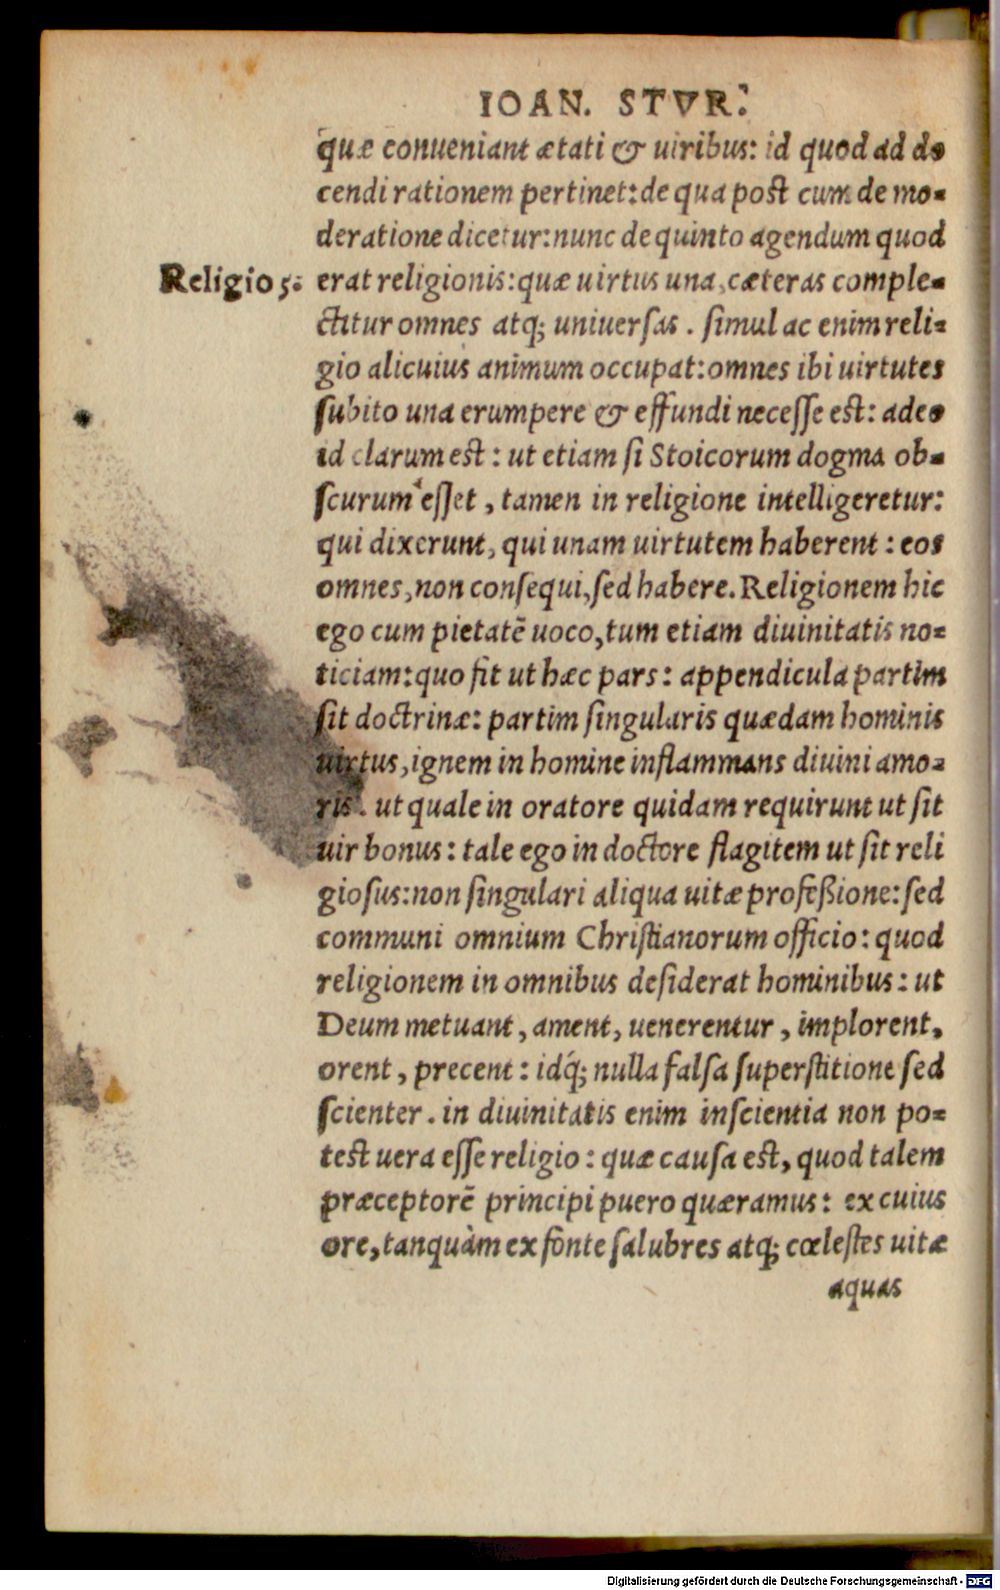 IOAN. STVR.
quæ conueniant ætati & uiribus: id quod ad do
cendi rationem pertinet: de qua post cum de mo-
deratione dicetur: nunc de quinto agendum quod
Religio 5. erat religionis: quæ uirtus una, cæteras comple-
ctitur omnes atq; uniuersas. simul ac enim reli-
gio alicuius animum occupat: omnes ibi uirtutes
subito una erumpere & effundi necesse est: adeo
id clarum est: ut etiam si Stoicorum dogma ob-
scurum esset, tamen in religione intelligeretur:
qui dixerunt, qui unam uirtutem haberent: eos
omnes, non consequi, sed habere. Religionem hic
ego cum pietatē uoco, tum etiam diuinitatis no-
ticiam: quo fit ut hæc pars: appendicula partim
sit doctrinæ: partim singularis quædam hominis
uirtus, ignem in homine inflammans diuini amo-
ris. ut quale in oratore quidam requirunt ut sit
uir bonus: tale ego in doctore flagitem ut sit reli
giosus: non singulari aliqua uitæ profeßione: sed
communi omnium Christianorum officio: quod
religionem in omnibus desiderat hominibus: ut
Deum metuant, ament, uenerentur, implorent,
orent, precent: idq́; nulla falsa superstitione sed
scienter. in diuinitatis enim inscientia non po-
test uera esse religio: quæ causa est, quod talem
præceptorē principi puero quæramus: ex cuius
ore, tanquàm ex fonte salubres atq; cœlestes uitæ
aquas
Digitalisierung gefördert durch die Deutsche Forschungsgemeinschaft - DFG